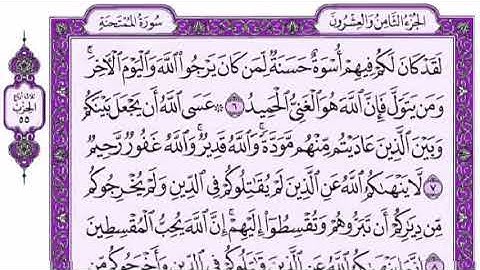 الجزء الثامن والعشرون
سورة الممتحنة
لَقَدْ كَانَ لَكُمْ فِيهِمْ أُسْوَةٌ حَسَنَةٌ لِّمَن كَانَ يَرْجُوا۟ ٱللَّهَ وَٱلْيَوْمَ ٱلْـَٔاخِرَ ۚ
وَمَن يَتَوَلَّ فَإِنَّ ٱللَّهَ هُوَ ٱلْغَنِىُّ ٱلْحَمِيدُ ٦ ۞ عَسَى ٱللَّهُ أَن يَجْعَلَ بَيْنَكُمْ
وَبَيْنَ ٱلَّذِينَ عَادَيْتُم مِّنْهُم مَّوَدَّةً ۚ وَٱللَّهُ قَدِيرٌ ۚ وَٱللَّهُ غَفُورٌ رَّحِيمٌ
٧ لَّا يَنْهَىٰكُمُ ٱللَّهُ عَنِ ٱلَّذِينَ لَمْ يُقَـٰتِلُوكُمْ فِى ٱلدِّينِ وَلَمْ يُخْرِجُوكُم
مِّن دِيَـٰرِكُمْ أَن تَبَرُّوهُمْ وَتُقْسِطُوٓا۟ إِلَيْهِمْ ۚ إِنَّ ٱللَّهَ يُحِبُّ ٱلْمُقْسِطِينَ
إِنَّمَا يَنْهَىٰكُمُ ٱللَّهُ عَنِ ٱلَّذِينَ قَـٰتَلُوكُمْ فِى ٱلدِّينِ وَأَخْرَجُوكُم مِّن
ثلاثة أرباع
الحزب
٥٥